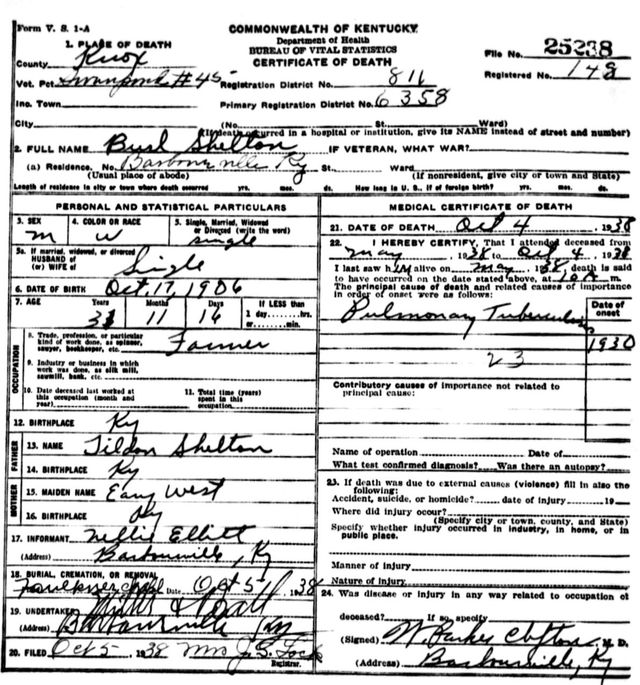 Form V. S. 1-A
COMMONWEALTH OF KENTUCKY
Department of Health
BUREAU OF VITAL STATISTICS
CERTIFICATE OF DEATH
File No. 25238
Registered No. 148
1. PLACE OF DEATH
County Knox
Vot. Pct. Swanpond #45
Registration District No. 811
Inc. Town
Primary Registration District No. 6358
City (No. St. Ward)
(If death occurred in a hospital or institution, give its NAME instead of street and number)
2. FULL NAME Busl Shelton IF VETERAN, WHAT WAR?
(a) Residence. No. Barbourville Ky St. Ward
(Usual place of abode) (If nonresident, give city or town and State)
Length of residence in city or town where death occurred yrs. mos. ds. How long in U. S., if of foreign birth? yrs. mos. ds.
PERSONAL AND STATISTICAL PARTICULARS
3. SEX
m
4. COLOR OR RACE
W
5. Single, Married, Widowed
or Divorced (write the word)
single
5a. If married, widowed, or divorced
HUSBAND of
(or) WIFE of
Single
6. DATE OF BIRTH Oct. 17, 1906
7. AGE Years Months Days If LESS than
31 11 16 1 day......hrs.
or......min.
OCCUPATION
8. Trade, profession, or particular
kind of work done, as spinner,
sawyer, bookkeeper, etc. Farmer
9. Industry or business in which
work was done, as silk mill,
sawmill, bank, etc.
10. Date deceased last worked at
this occupation (month and
year)
11. Total time (years)
spent in this
occupation
12. BIRTHPLACE Ky
FATHER
13. NAME Tildon Shelton
14. BIRTHPLACE Ky
MOTHER
15. MAIDEN NAME Eary West
16. BIRTHPLACE Ky
17. INFORMANT Nellie Elliott
(Address) Barbourville, Ky
18. BURIAL, CREMATION, OR REMOVAL
Faulkner chapel Date Oct 5 1938
19. UNDERTAKER
(Address) Barbourville
20. FILED Oct 5, 1938 Mrs J. S. Lock
Registrar.
MEDICAL CERTIFICATE OF DEATH
21. DATE OF DEATH Oct 4, 1938
22. I HEREBY CERTIFY, That I attended deceased from
may, 1938 to Oct 4, 1938
I last saw him alive on may 1938, death is said
to have occurred on the date stated above, at m.
The principal cause of death and related causes of importance
in order of onset were as follows:
Date of
onset
Pulmonary Tuberculosis 1930
23
Contributory causes of importance not related to
principal cause:
Name of operation Date of
What test confirmed diagnosis? Was there an autopsy?
23. If death was due to external causes (violence) fill in also the
following:
Accident, suicide, or homicide? date of injury 19
Where did injury occur?
(Specify city or town, county, and State)
Specify whether injury occurred in industry, in home, or in
public place.
Manner of injury
Nature of injury
24. Was disease or injury in any way related to occupation of
deceased? If so, specify
(Signed) W. Parker Clifton M. D.
(Address) Barbourville, Ky